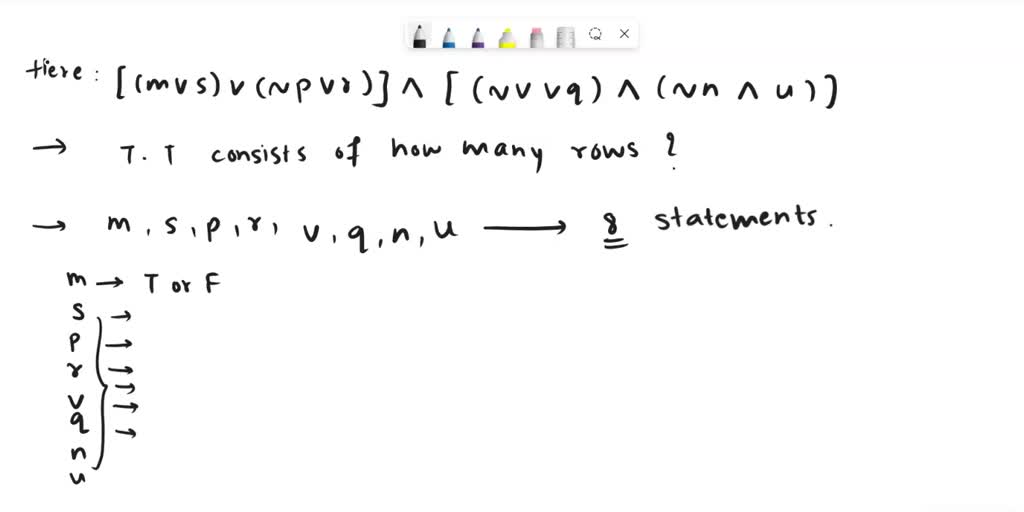 Here : [(m ∨ s) ∨ (~p ∨ r)] ∧ [(~v ∨ q) ∧ (~n ∧ u)]
→ T.T consists of how many rows ?
→ m, s, p, r, v, q, n, u ⟶ 8 statements.
m → T or F
s →
p →
r →
v →
q →
n
u